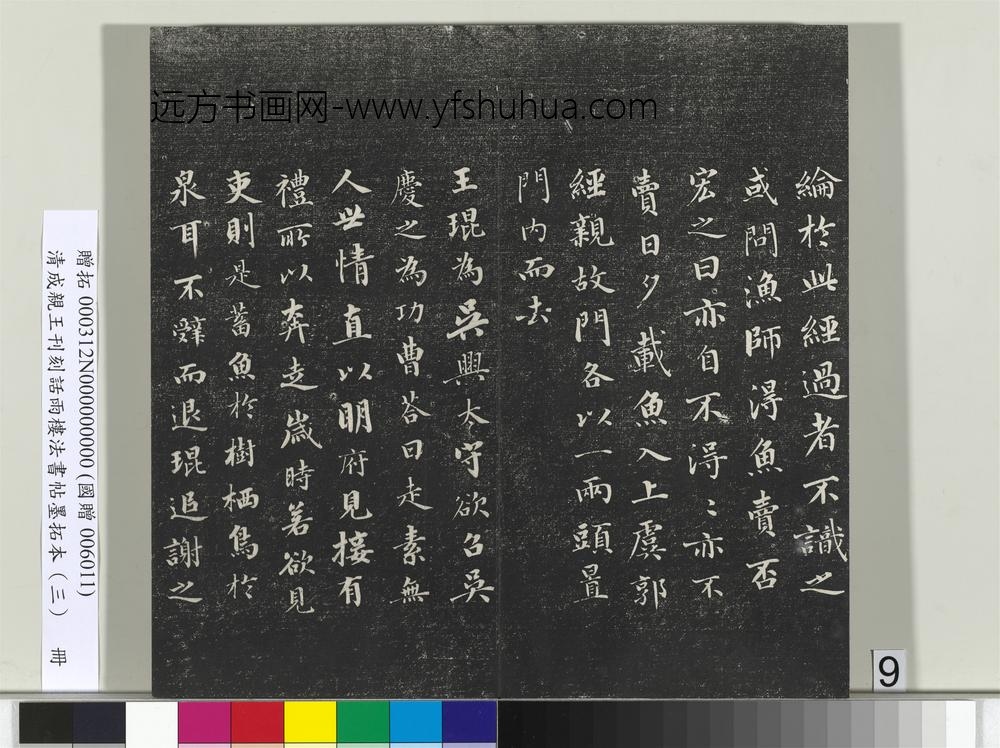 远方书画网-www.yfshuhua.com
綸於此經過者不識之
或問漁師得魚賣否
宏之曰亦自不得得亦不
賣日夕載魚入上虞郭
經親故門各以一兩頭置
門內而去
王琨為吳興太守欲召吳
慶之為功曹荅曰走素無
人世情直以明府見接有
禮所以奔走歲時若欲見
吏則是蓄魚於樹栖鳥於
泉耳不辭而退琨追謝之
贈拓 000312N000000000 (國贈 006011)
清成親王刊刻話雨樓法書帖墨拓本（三） 冊
9